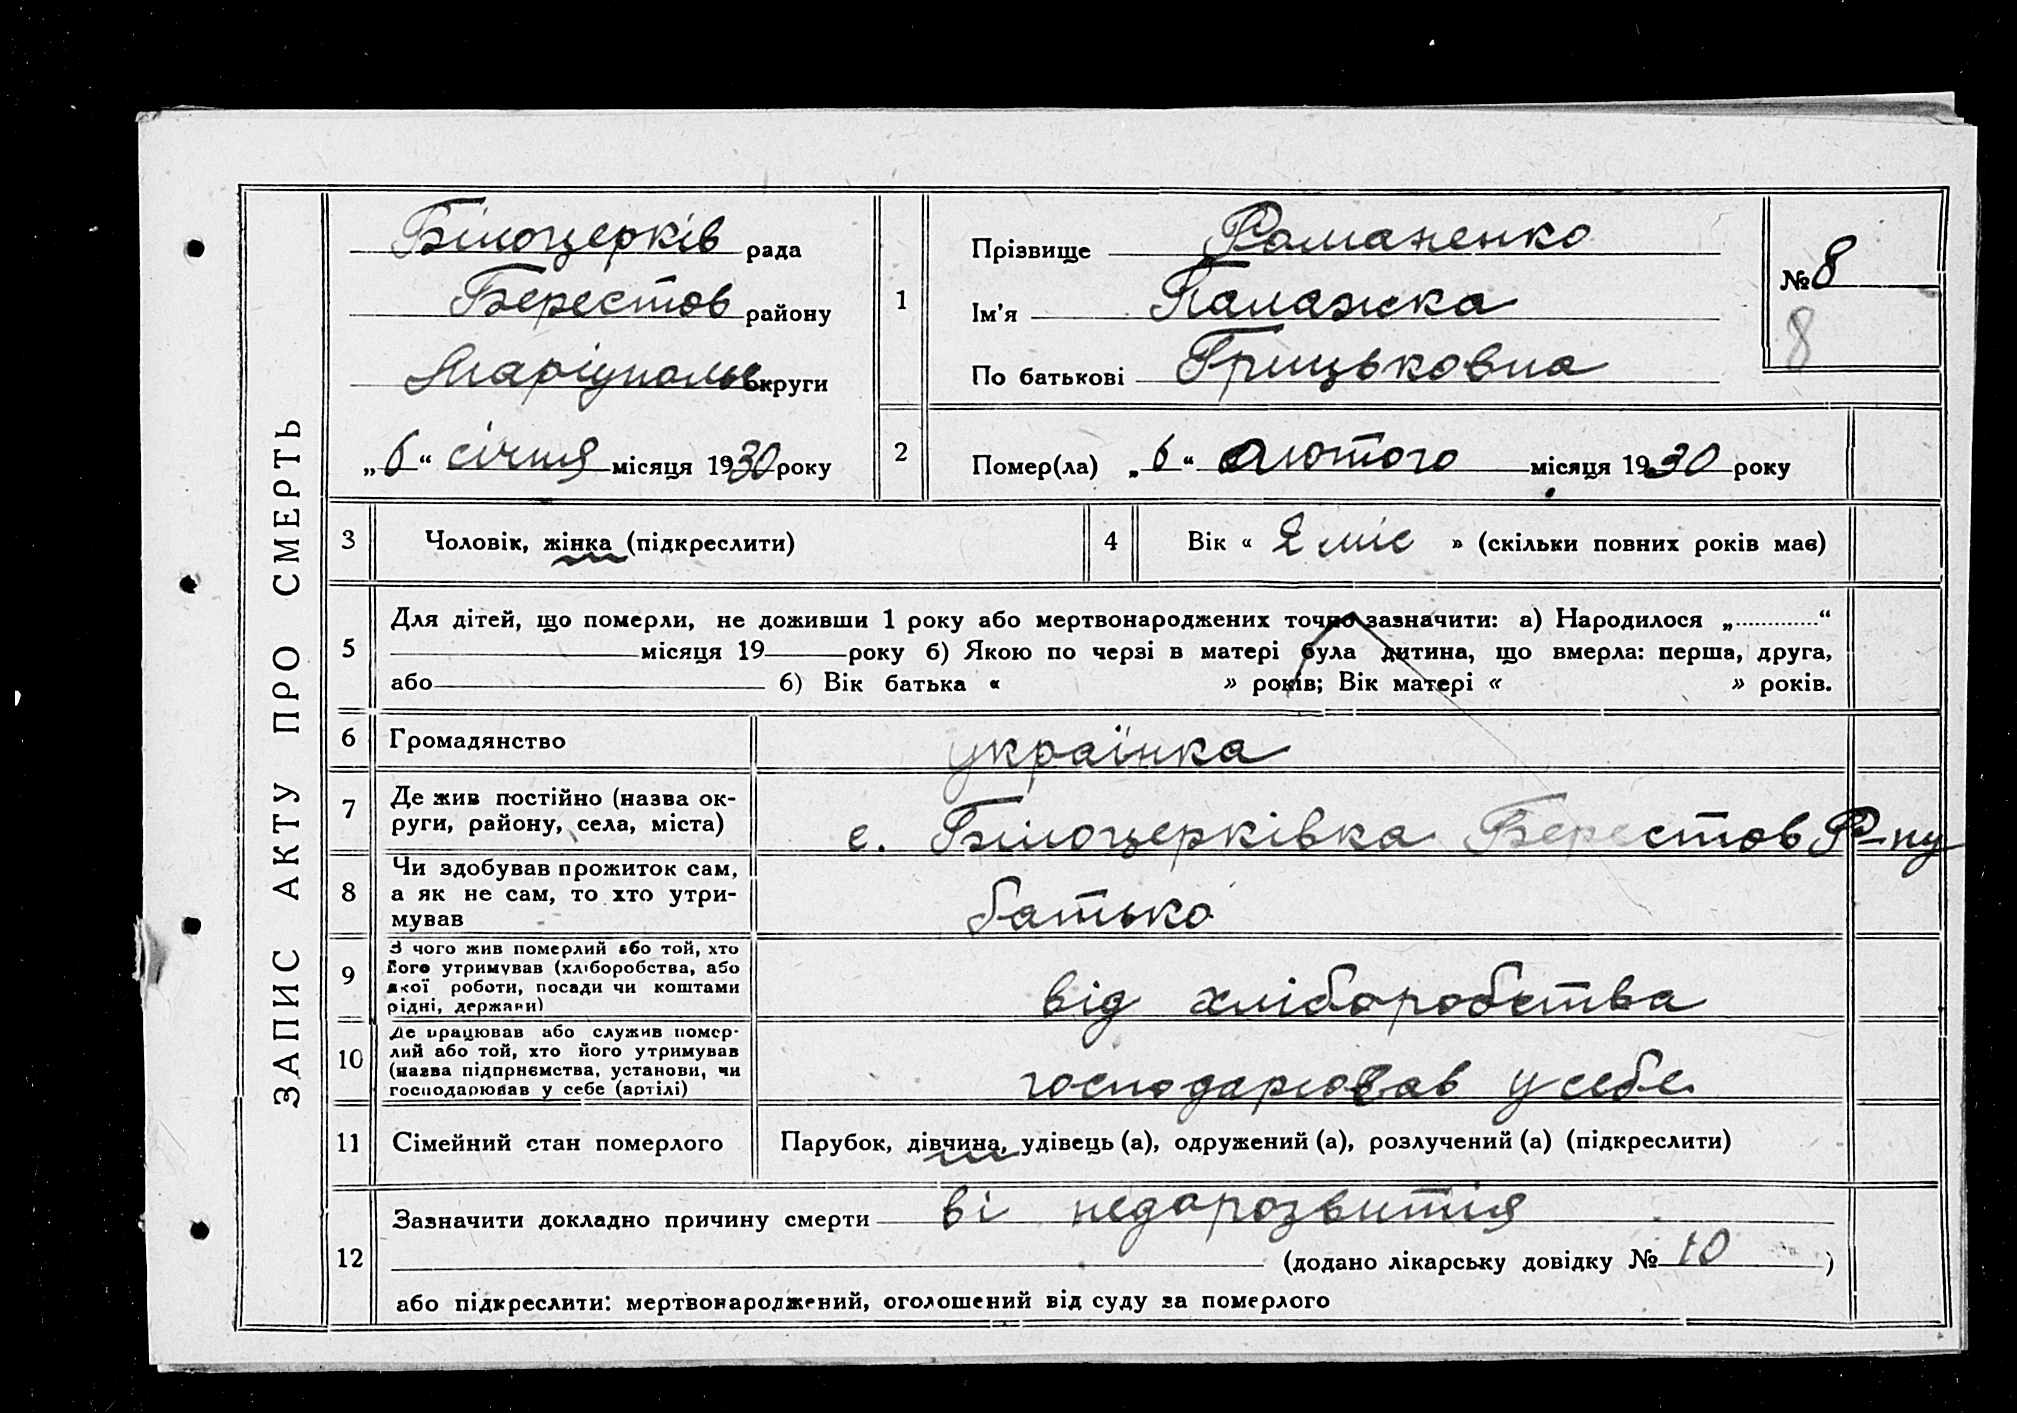 ЗАПИС АКТУ ПРО СМЕРТЬ
Білоцерків рада
Берестов району
Маріуполь округи
„6“ січня місяця 1930 року
1
Прізвище Романенко
Ім'я Палажка
По батькові Грицьковна
№ 8
8
2
Помер(ла) „6“ лютого місяця 1930 року
3
Чоловік, жінка (підкреслити)
4
Вік « 2 міс » (скільки повних років має)
5
Для дітей, що померли, не доживши 1 року або мертвонароджених точно зазначити: а) Народилося „ “
місяця 19 року б) Якою по черзі в матері була дитина, що вмерла: перша, друга,
або б) Вік батька « » років; Вік матері « » років.
6
Громадянство
українка
7
Де жив постійно (назва ок-
руги, району, села, міста)
с. Білоцерківка Берестов Р-ну
8
Чи здобував прожиток сам,
а як не сам, то хто утри-
мував
батько
9
З чого жив померлий або той, хто
його утримував (хліборобства, або
якої роботи, посади чи коштами
рідні, держави)
від хліборобства
10
Де працював або служив помер-
лий або той, хто його утримував
(назва підприємства, установи, чи
господарював у себе (артілі)
господарював у себе
11
Сімейний стан померлого
Парубок, дівчина, удівець (а), одружений (а), розлучений (а) (підкреслити)
12
Зазначити докладно причину смерти ві недорозвитія
(додано лікарську довідку № 10 )
або підкреслити: мертвонароджений, оголошений від суду за померлого